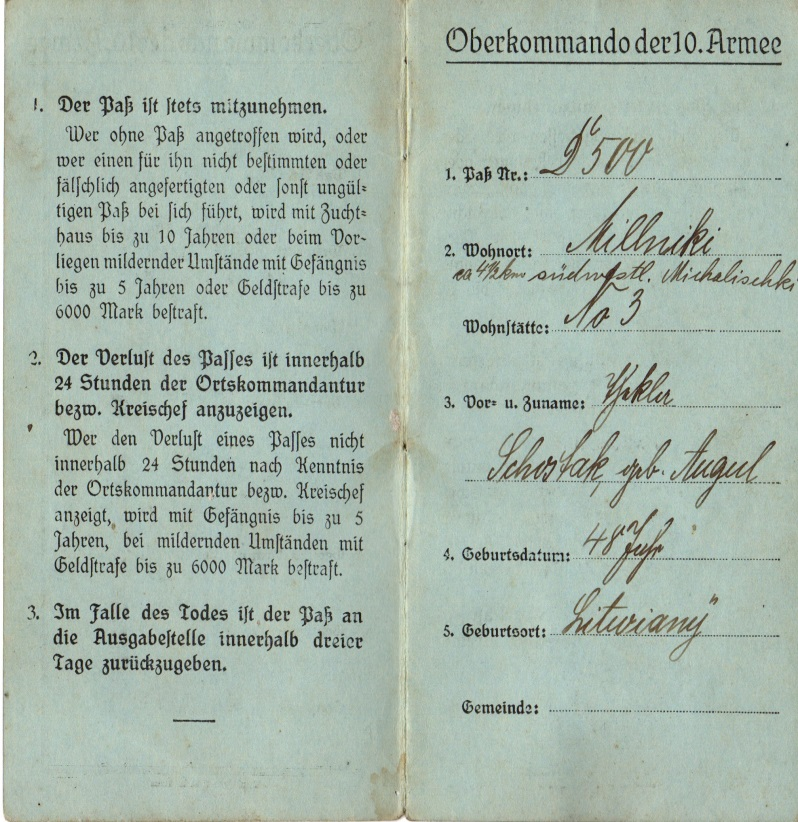 1. Der Paß ist stets mitzunehmen.
Wer ohne Paß angetroffen wird, oder
wer einen für ihn nicht bestimmten oder
fälschlich angefertigten oder sonst ungül-
tigen Paß bei sich führt, wird mit Zucht-
haus bis zu 10 Jahren oder beim Vor-
liegen mildernder Umstände mit Gefängnis
bis zu 5 Jahren oder Geldstrafe bis zu
6000 Mark bestraft.
2. Der Verlust des Passes ist innerhalb
24 Stunden der Ortskommandantur
bezw. Kreischef anzuzeigen.
Wer den Verlust eines Passes nicht
innerhalb 24 Stunden nach Kenntnis
der Ortskommandantur bezw. Kreischef
anzeigt, wird mit Gefängnis bis zu 5
Jahren, bei mildernden Umständen mit
Geldstrafe bis zu 6000 Mark bestraft.
3. Im Falle des Todes ist der Paß an
die Ausgabestelle innerhalb dreier
Tage zurückzugeben.
Oberkommando der 10. Armee
1. Paß Nr.: 500
2. Wohnort: Millniki
ca 4½ km südwestl. Michalischki
Wohnstätte: No 3
3. Vor- u. Zuname: Thekler
Schostak, geb. Augul
4. Geburtsdatum: 48 Jahr
5. Geburtsort:
Gemeinde: